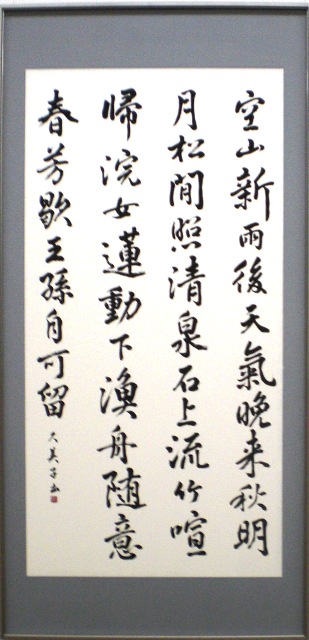 空山新雨後天氣晩来秋明
月松間照清泉石上流竹喧
帰浣女蓮動下漁舟随意
春芳歇王孫自可留
久美子書